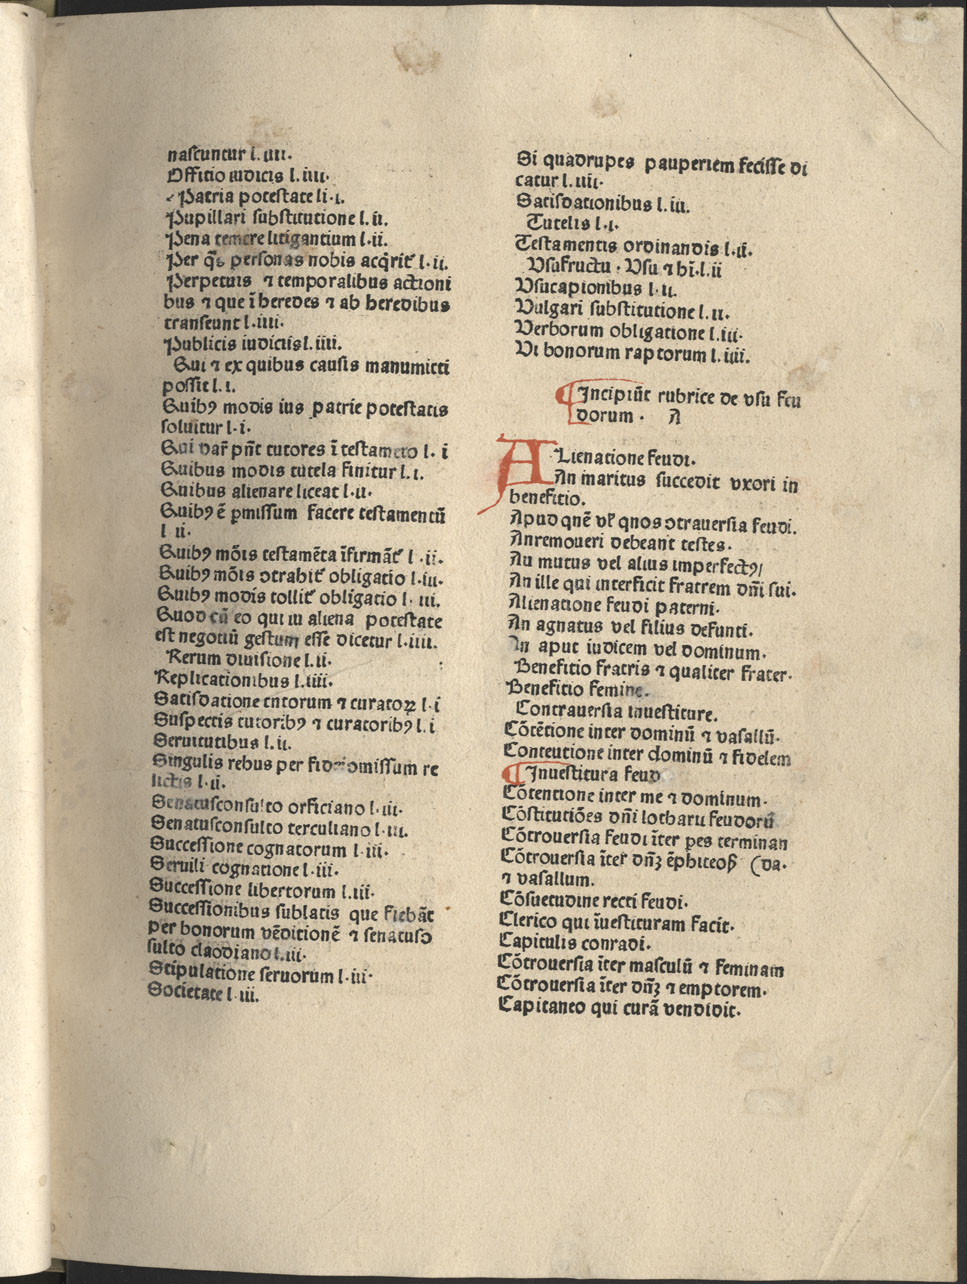 nascuntur l. iiii.
Offitio iudicis l. iiii.
Patria potestate li.i.
Pupillari substitutione l. ii.
Pena temere litigantium l.ii.
Per q̄s personas nobis acq̄rit᷑ l.ii.
Perpetuis ⁊ temporalibus actioni
bus ⁊ que ī heredes ⁊ ab heredibus
transeunt l.iiii.
Publicis iudiciis l. iiii.
Qui ⁊ ex quibus causis manumitti
possit l. i.
Quibꝰ modis ius patrie potestatis
soluitur l.i.
Qui dar̄ pn̄t tutores ī testamēto l. i
Quibus modis tutela finitur l. i.
Quibus alienare liceat l.ii.
Quibꝰ ē pmissum facere testamentū
l ii.
Quibꝰ mōis testamēta īfirmāt᷑ l .ii.
Quibꝰ mōis ɔtrahit᷑ obligatio l.iii.
Quibꝰ modis tollit᷑ obligatio l. iii.
Quod cū eo qui in aliena potestate
est negotiū gestum esse dicetur l.iiii.
Rerum diuisione l. ii.
Replicationibus l.iiii.
Satisdatione tutorum ⁊ curatoꝝ l.i
Suspectis tutoribꝰ ⁊ curatoribꝰ l. i
Seruitutibus l. ii.
Singulis rebus per fideicomissum re
lictis l.ii.
Senatusconsulto orficiano l.iii.
Senatusconsulto terculiano l.iii.
Successione cognatorum l.iii.
Seruili cognatione l.iii.
Successione libertorum l.iii.
Successionibus sublatis que fiebāt
per bonorum vēditionē ⁊ senatusɔ
sulto claodiano l.iii.
Stipulatione seruorum l.iii.
Societate l.iii.
Si quadrupes pauperiem fecisse di
catur l.iiii.
Satisdationibus l. iiii.
Tutelis l.i.
Testamentis ordinandis l.ii.
Usufructu . Usu ⁊ hī.l.ii
Usucapionibus l.ii.
Vulgari substitutione l. ii.
Verborum obligatione l. iii.
Vi bonorum raptorum l. iiii.
¶Incipiūt rubrice de vsu feu
dorum . A
ALienatione feudi.
An maritus succedit vxori in
benefitio.
Apud quē vl̓ quos ɔtrauersia feudi.
An remoueri debeant testes.
An mutus vel alius imperfectꝰ/
An ille qui interficit fratrem dn̄i sui.
Alienatione feudi paterni.
An agnatus vel filius defunti.
An aput iudicem vel dominum.
Benefitio fratris ⁊ qualiter frater.
Benefitio femine.
Contrauersia inuestiture.
Cōtētione inter dominū ⁊ vasallū.
Conteutione inter dominū ⁊ fidelem
¶Inuestitura feud
Cōtentione inter me ⁊ dominum.
Cōstitutiōes dn̄i lotharii feudorū
Cōtrouersia feudi īter pes terminan
Cōtrouersia īter dn̄ʒ ēphiteoꝭ (da.
⁊ vasallum.
Cōsuetudine recti feudi.
Clerico qui īuestituram facit.
Capitulis conradi.
Cōtrouersia īter masculū ⁊ feminam
Cōtrouersia īter dn̄ʒ ⁊ emptorem.
Capitaneo qui curā vendidit.